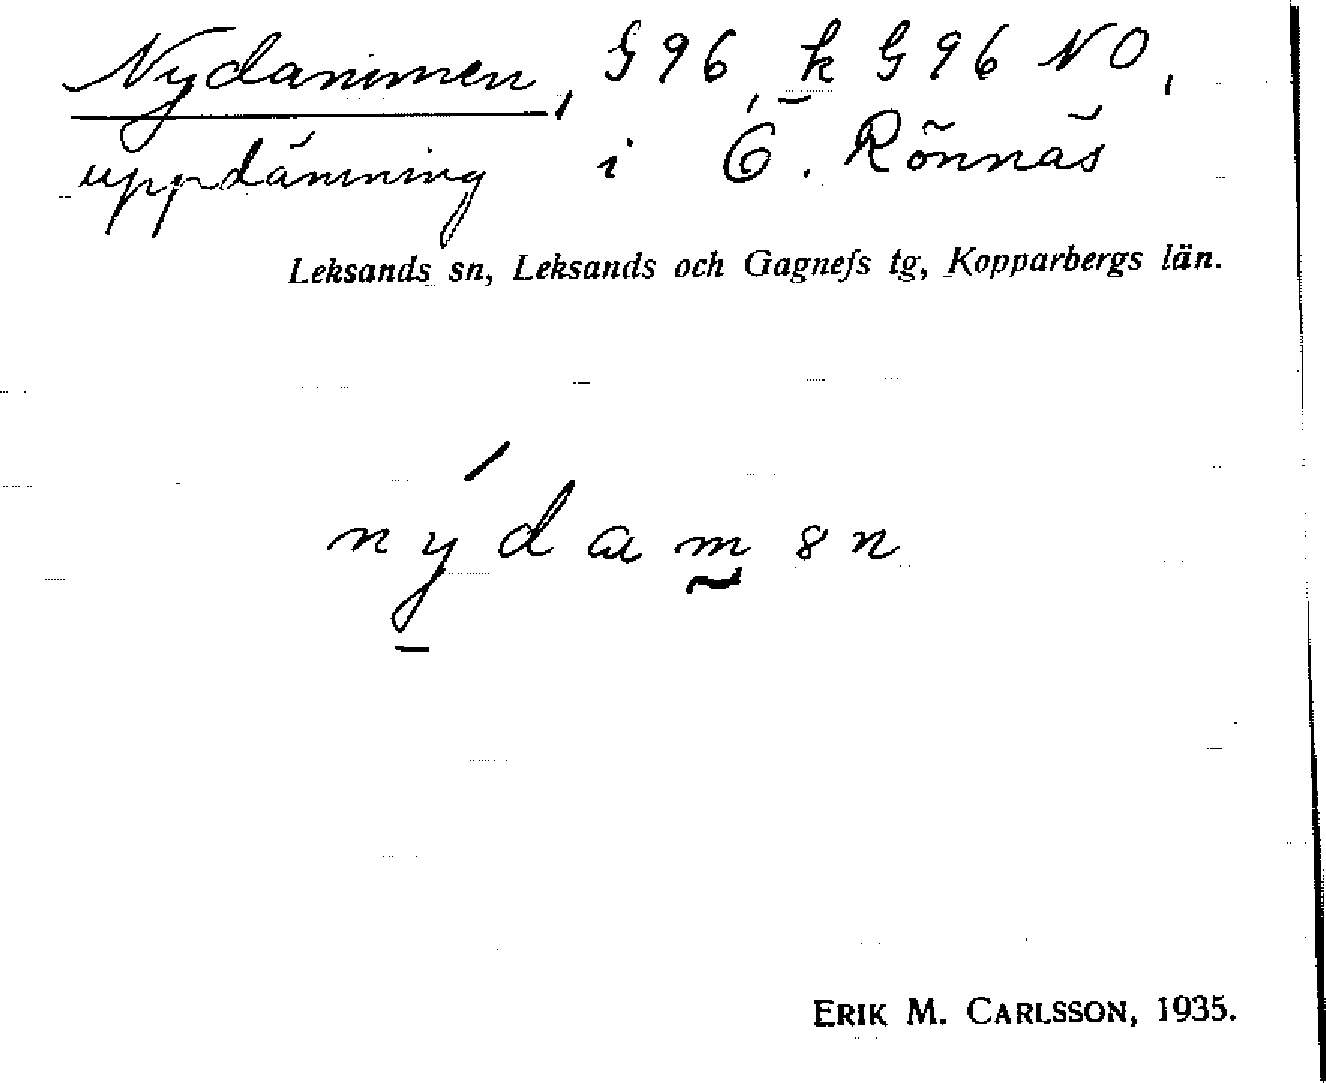 Nydammen, G 96, k G 96 NO,
uppdämning i Ö. Rönnäs
Leksands sn, Leksands och Gagnefs tg, Kopparbergs län.
nýdam̰ən
ERIK M. CARLSSON, 1935.